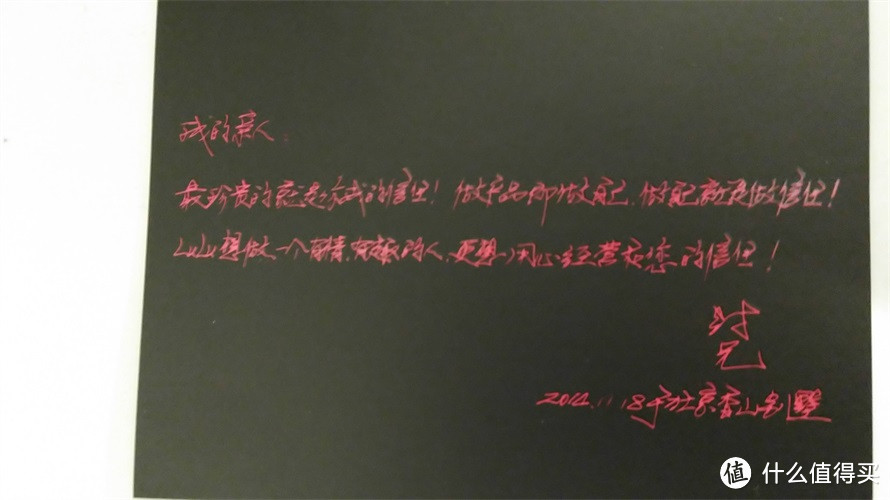 我的亲人:
最珍贵的就是你我的信任!做产品即做自己,做自己就是做信任!
Lulu想做一个有情,有 的人,更想用心经营好您的信任!
2014.11.18于北京香山别墅
值 什么值得买